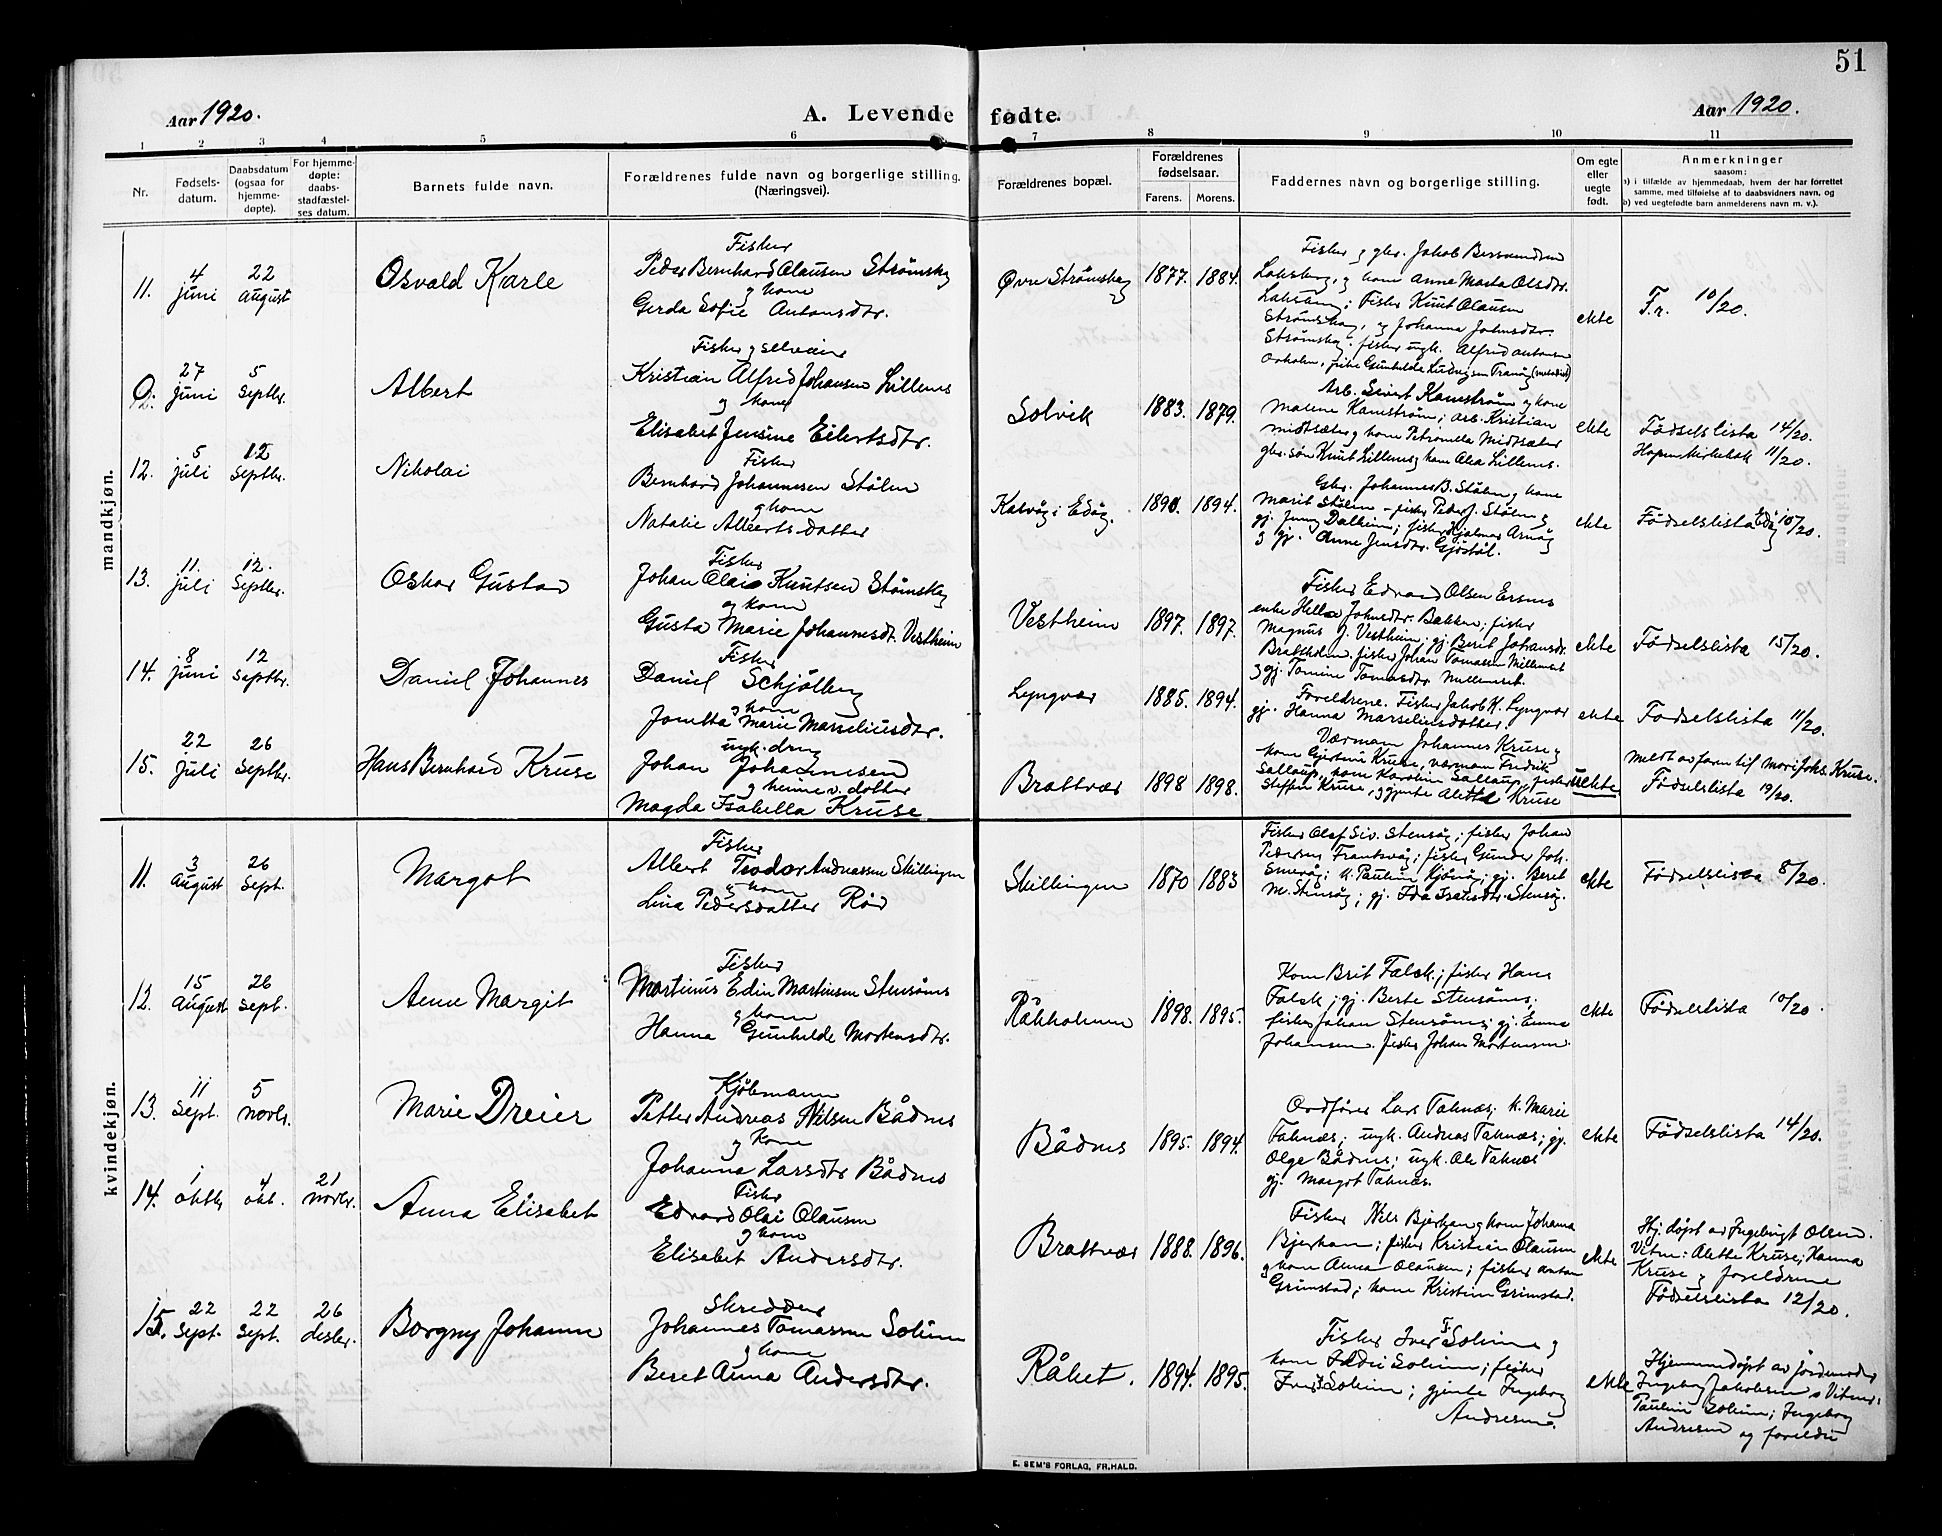 51
Aar 1920.
A. Levende fødte.
Aar 1920.
1 2 3 4 5 6 7 8 9 10 11
Nr.
Fødsels-
datum.
Daabsdatum
(ogsaa for
hjemme-
døpte).
For hjemme-
døpte:
daabs-
stadfæstel-
ses datum.
Barnets fulde navn.
Forældrenes fulde navn og borgerlige stilling.
(Næringsvei).
Forældrenes bopæl.
Forældrenes
fødselsaar.
Farens. Morens.
Faddernes navn og borgerlige stilling.
Om egte
eller
uegte
født.
Anmerkninger
saasom:
a) i tilfælde av hjemmedaab, hvem der har forrettet
samme, med tilføielse af to daabsvidners navn, og
b) ved uegtefødte barn anmelderens navn m. v.).
mandkjøn.
11.
4
juni
22
August
Osvald Karle
Fisker
Peder Bernhard Olausen Strømskag
og kone
Gerda Sofie Antonsdtr.
Øvre Strømskag
1877. 1884.
Fisker og gbr. Jakob
og kone Anne Marta Olsdtr.
Fisker Knut Olausen
Strømskag, og Johanna Johnsdtr.
Strømskag. fisker ungk. Alfred Antonsen
ekte
F.r. 10/20.
27
juni
5
Septbr.
Albert
Fisker og selveier
Kristian Alfred Johansen Lillenes
og kone
Elisabet Jensine Eilertsdtr.
Solvik
1883. 1879.
Arb. Sivert Kanestrøm og kone
Malene Kanestrøm; arb. Kristian
Midtsæter og kone Petronella Midtsæter
gbr. søn Knut Lillenes og kone Alea Lillenes.
ekte
Fødselslista 14/20.
12.
5
juli
12
Septbr.
Nikolai
Fisker
Bernhard Johannesen Stølen
og kone
Natalie Albertsdatter
Kalvåg i Edøy.
1890. 1894.
Gbr. Johannes B. Stølen og kone
Marit Stølen - fisker Peder J. Stølen og
gj. Jenny Dalheim; fisker Hjalmar Arnøy
og gj. Anne Jensdtr. Gjøstøl.
ekte
Hopen Mirkebak 11/20.
Fødselslista Edøy 10/20.
13.
11.
juli
12.
Septbr.
Oskar Gustav
Fisker
Johan Olai Knutsen Strømskag
og kone
Gusta Marie Johannesdt. Vestheim
Vestheim
1897. 1897.
Fisker Edvard Olsen Ersnes
enke Johnsdtr. Bakken; fisker
Magnus J. Vestheim; gj. Berit Johansdr.
Brattholm. fisker Johan Tomassen
og gj. Tomine Tomasdtr.
ekte
Fødselslista 15/20.
14.
8
juni
12
Septbr.
Daniel Johannes
Fisker
Daniel Schjølberg
og kone
Jonetta Marie Marseliusdtr.
Lyngvær
1885. 1894.
Foreldrene. Fisker Jakob K. Lyngvær
gj. Hanna Marseliusdatter.
ekte
Fødselslista 11/20.
15.
22
juli
26
Septbr.
Hans Bernhard Kruse
ungk. dreng
Johan Johannesen
og heimev. dotter
Magda Isabella Kruse
Brattvær
1898 1898.
Værmann Johannes Kruse og
kone Gjertine Kruse, værmann Fredrik
Sallaup, kone Karolin Sallaup, fisker
Steffen Kruse, og gjente Alette Kruse
uekte
Meldt av farm til mor: Johs. Kruse.
Fødselslista 19/20.
kvindekjøn.
11.
3
August
26
Sept.
Margot
Fisker
Albert Teodor Andreassen Skillingen
og kone
Lina Pedersdatter Rød
Skillingen
1870 1883
Fisker Olaf Siv. Stensøy; fisker Johan
Pedersen Frantsvåg; fisker Gunder Joh.
Smevåg; k. Pauline Kjønøy; gj. Beret
M. Stensøy; gj. Ida Isaksdtr. Stensøy.
ekte
Fødselslista 8/20.
12.
15
August
26
Sept.
Anne Margit
Fisker
Martinus Edin Martinsen Stensønes
og kone
Hanna Gunhilde Mortensdtr.
Råkholmen
1898. 1895.
Kone Brit Falck; fisker Hans
Falck; gj. Berte Stensønes;
fisker Johan Stensønes; gj. Emma
Johansen. fisker Johan Mortensen.
ekte
Fødselslista 10/20.
13.
11
Sept.
5
Novbr.
Marie Dreier
Kjøbmann
Petter Andreas Nilsen Bådnes
og kone
Johanna Larsdtr Bådnes
Bådnes
1895. 1894.
Ordfører Lars Taknæs; k. Marie
Taknæs; ungk. Andreas Taknæs; gj.
Olga Bådnes; ungk. Ole Taknæs
gj. Margot Taknæs.
ekte
Fødselslista 14/20.
14.
1
oktb.
4
okt.
21
Novbr.
Anna Elisabet
Fisker
Edvard Olai Olausen
og kone
Elisabet Andersdtr.
Brattvær
1888. 1896.
Fisker Nils Bjerkan og kone Johanna
Bjerkan; fisker Kristian Olausen
og kone Anna Olausen; fisker Anton
Grimstad; kone Kristine Grimstad.
ekte
Hj. døpt av Ingebrigt Olsen.
Vitne: Alette Kruse; Hanna
Kruse og foreldrene
Fødselslista 12/20.
15.
22
Sept.
22
Sept.
26
desbr.
Borgny Johanne
Skredder
Johannes Tomassen Solum
og kone
Beret Anna Andersdtr.
Råket.
1894. 1895.
Fisker Iver F. Solum og
kone Solum; fisker
Iver J. Solum; gjente Ingeborg
Andresen.
ekte
Hjemmedøpt av jordmoder
Ingeborg Jakobsen. Vitner:
Pauline Solum; Ingeborg
Andresen og foreldre
E. SEM'S FORLAG, FR.HALD.